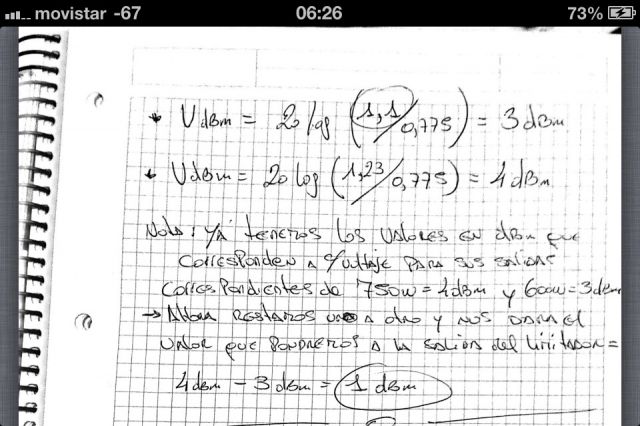 movistar -67 06:26 73%
* UdBm = 20 log (1,1/0,775) = 3 dBm
* UdBm = 20 log (1,23/0,775) = 4 dBm
Nota: YA TENEMOS LOS VALORES EN dBm QUE
CORRESPONDEN A c/voltaje PARA SUS SALIDAS
CORRESPONDIENTES DE 750W = 4dBm y 600W = 3dBm
→ AHORA RESTAMOS UNO A OTRO Y NOS DARA EL
VALOR QUE PONDREMOS A LA SALIDA del limitador =
4 dBm - 3 dBm = 1 dBm